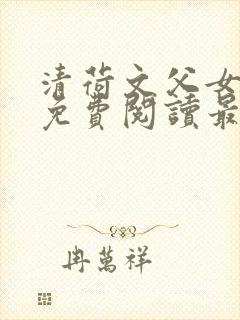 清荷文父女
免費閱讀最
冉萬祥